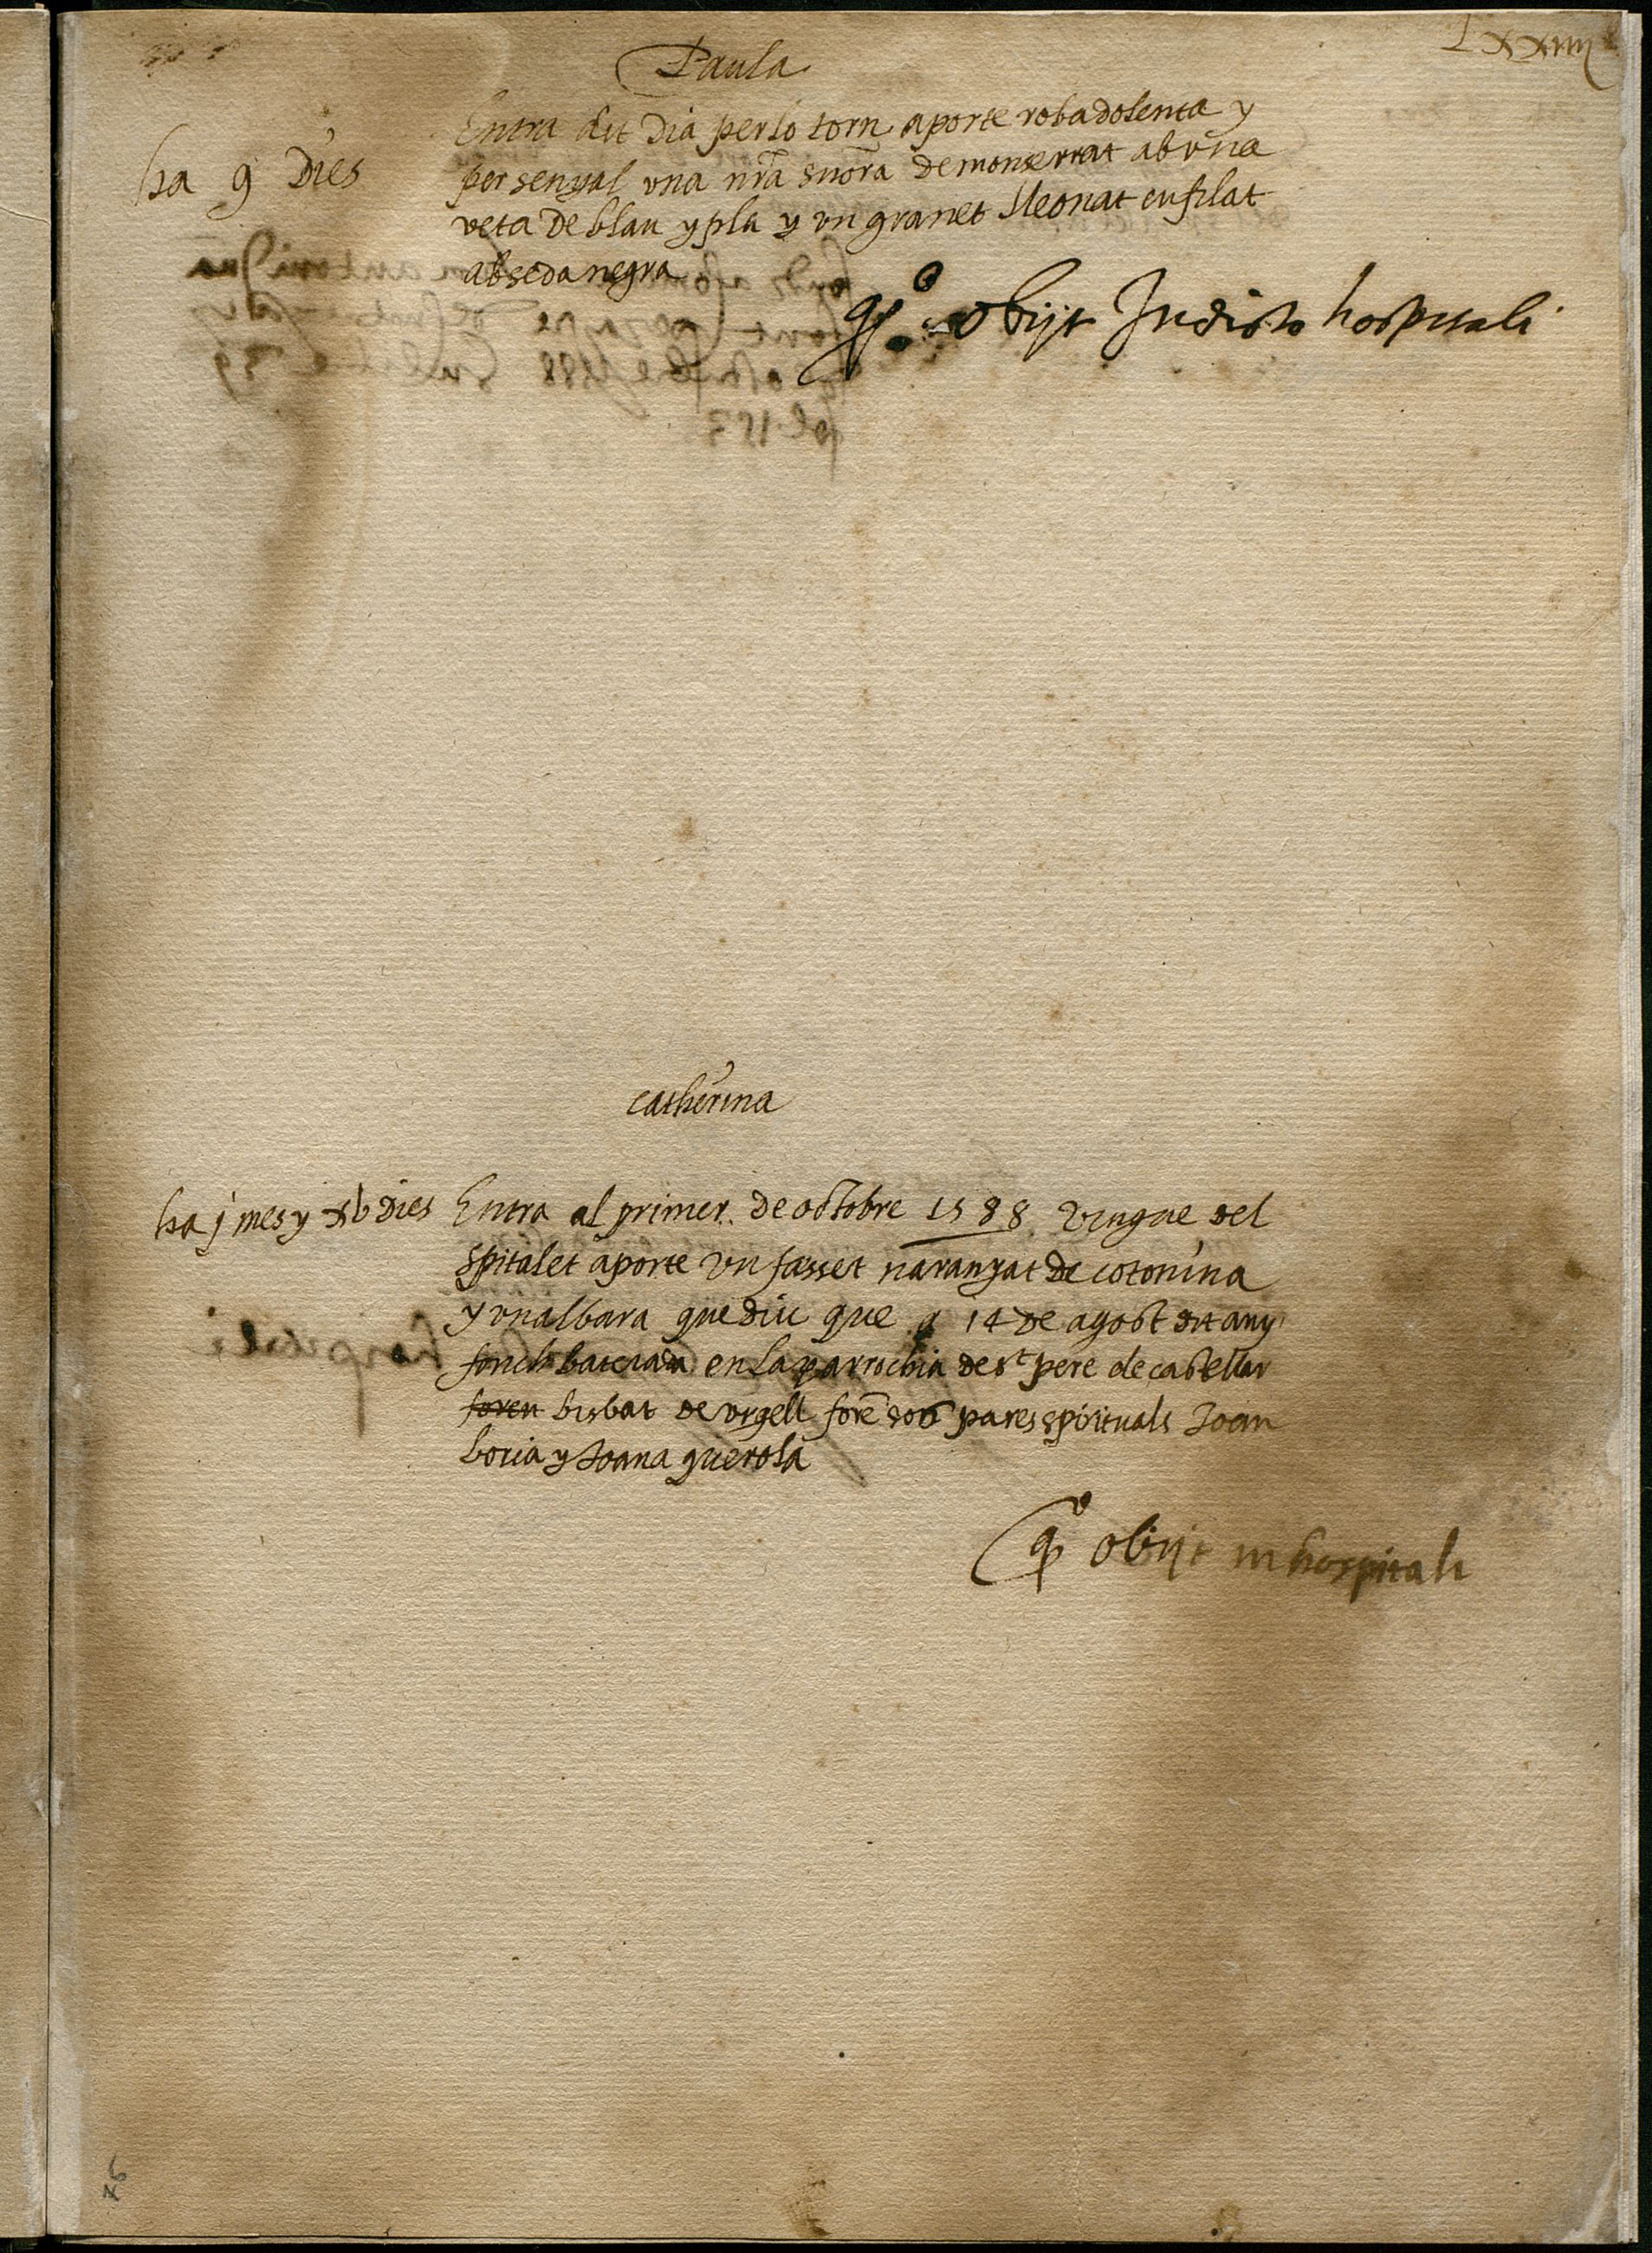 Lxxiiij
Paula
ha 9 Dies
Entra dit Dia per lo torn aporte roba dolenta y
per senyal vna nr̃a sñora de monserrat ab vna
veta de blau y pla y vn granet lleonat enfilat
ab seda negra
qº obijt In dicto hospitali
catherina
ha j mes y xb dies
Entra al primer de octobre 1588 vingue del
spitalet aporte vn fasset naranyat de cotonina
y vn albara que diu que a 14 de agost dit any
fonch batejada en la parrochia de st pere de castellar
foren bisbat de vrgell forẽ sos pares spirituals Joan
boria y Joana querola
qº obijt in hospitali